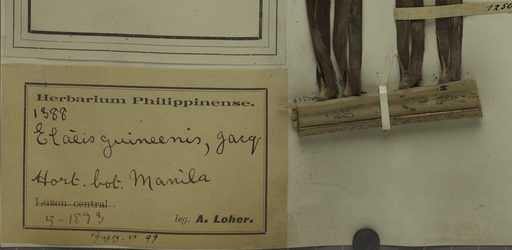 1250
Herbarium Philippinense.
1388
Elaeis guineensis, Jacq
Hort. bot. Manila
Luzon central
5-1893
leg. A. Loher.